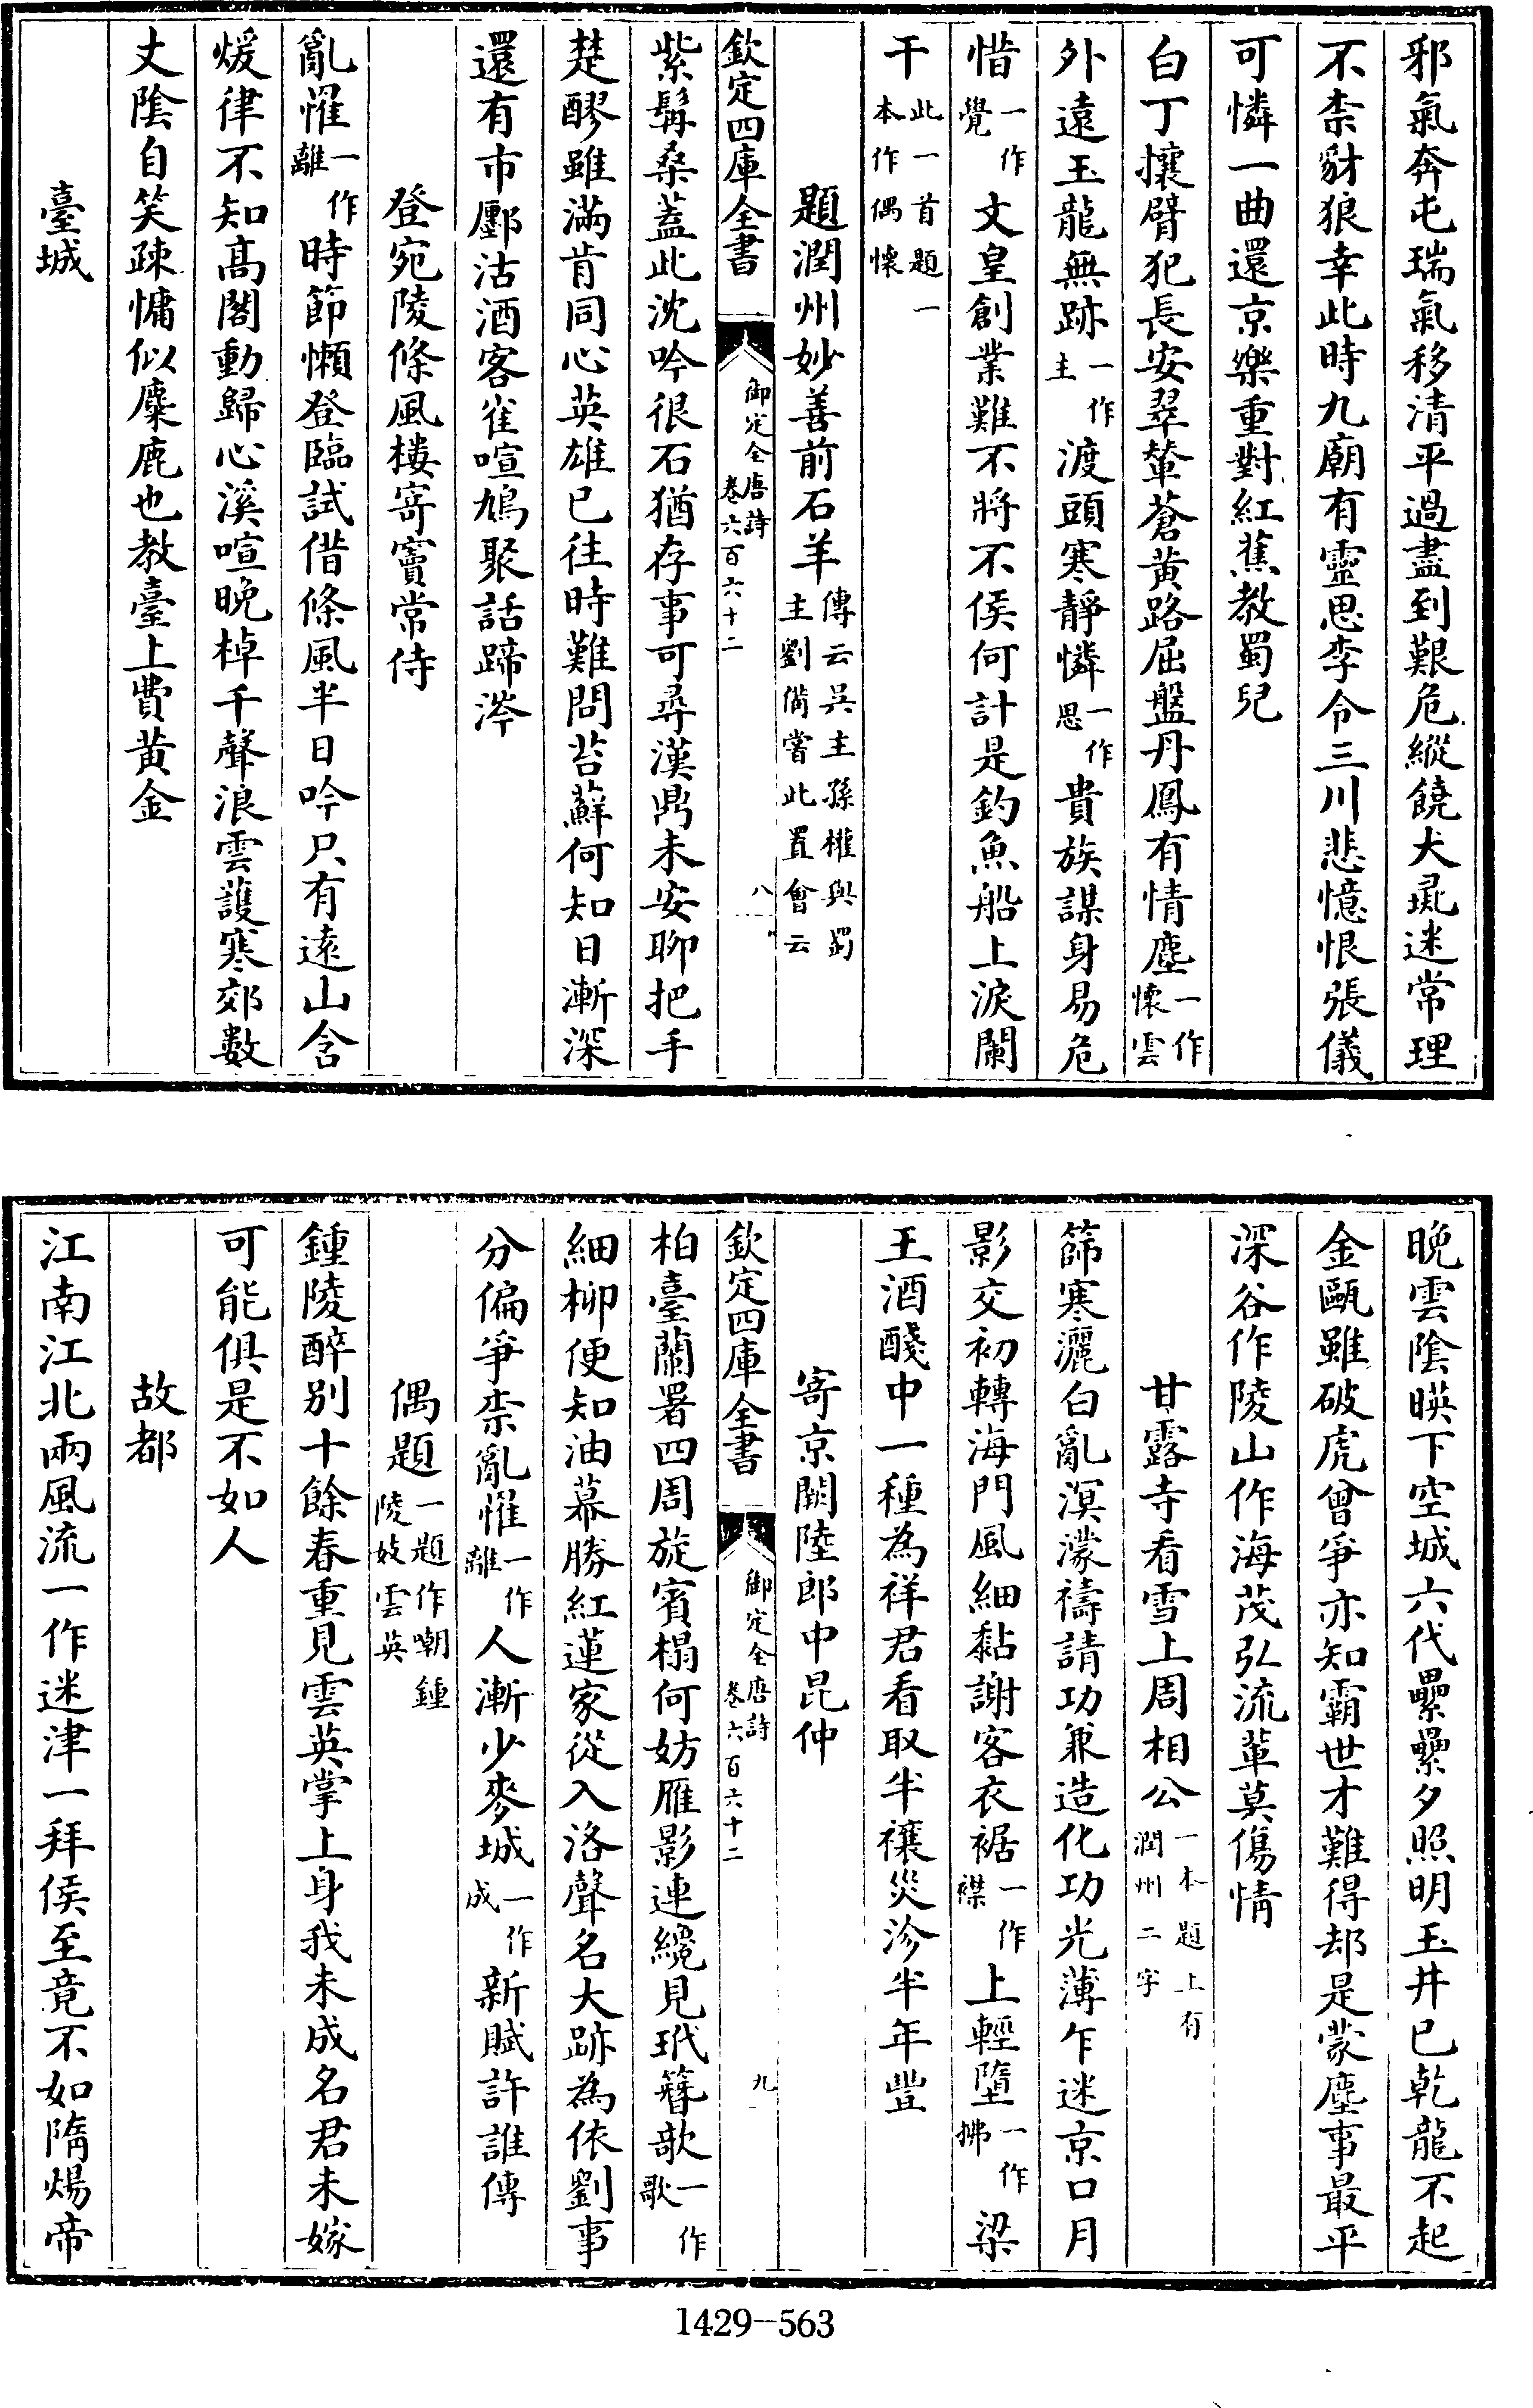 邪氣奔屯瑞氣移清平過盡到艱危縱饒犬彘迷常理
不柰豺狼幸此時九廟有靈思李令三川悲憶恨張儀
可憐一曲還京樂重對紅蕉教蜀兒
白丁攘臂犯長安翠輦蒼黃路屈盤丹鳳有情塵一作懷雲
外遠玉龍無跡一作主渡頭寒靜憐一作思貴族謀身易危
惜一作覺文皇創業難不將不侯何計是釣魚船上淚闌
干此一首題一本作偶懷
題潤州妙善前石羊傳云吳主孫權與蜀主劉備嘗此置會云
欽定四庫全書 御定全唐詩卷六百六十二 八
紫髯桑蓋此沈吟很石猶存事可尋漢鼎未安聊把手
楚醪雖滿肯同心英雄已往時難問苔蘚何知日漸深
還有市廛沽酒客雀喧鳩聚話蹄涔
登宛陵條風樓寄竇常侍
亂罹一作離時節懶登臨試借條風半日吟只有遠山含
煖律不知高閣動歸心溪喧晚棹千聲浪雲護寒郊數
丈陰自笑疎慵似麋鹿也教臺上費黃金
臺城
晚雲陰暎下空城六代纍纍夕照明玉井已乾龍不起
金甌雖破虎曾爭亦知霸世才難得却是蒙塵事最平
深谷作陵山作海茂弘流輩莫傷情
甘露寺看雪上周相公一本題上有潤州二字
篩寒灑白亂溟濛禱請功兼造化功光薄乍迷京口月
影交初轉海門風細黏謝客衣裾一作襟上輕墮一作拂梁
王酒醆中一種為祥君看取半禳災沴半年豐
寄京闕陸郎中昆仲
欽定四庫全書 御定全唐詩卷六百六十二 九
柏臺蘭署四周旋賓榻何妨雁影連纔見玳簪欹一作歌
細柳便知油幕勝紅蓮家從入洛聲名大跡為依劉事
分偏爭柰亂罹一作離人漸少麥城一作成新賦許誰傳
偶題一題作嘲鍾陵妓雲英
鍾陵醉別十餘春重見雲英掌上身我未成名君未嫁
可能俱是不如人
故都
江南江北兩風流一作迷津一拜侯至竟不如隋煬帝
1429-563